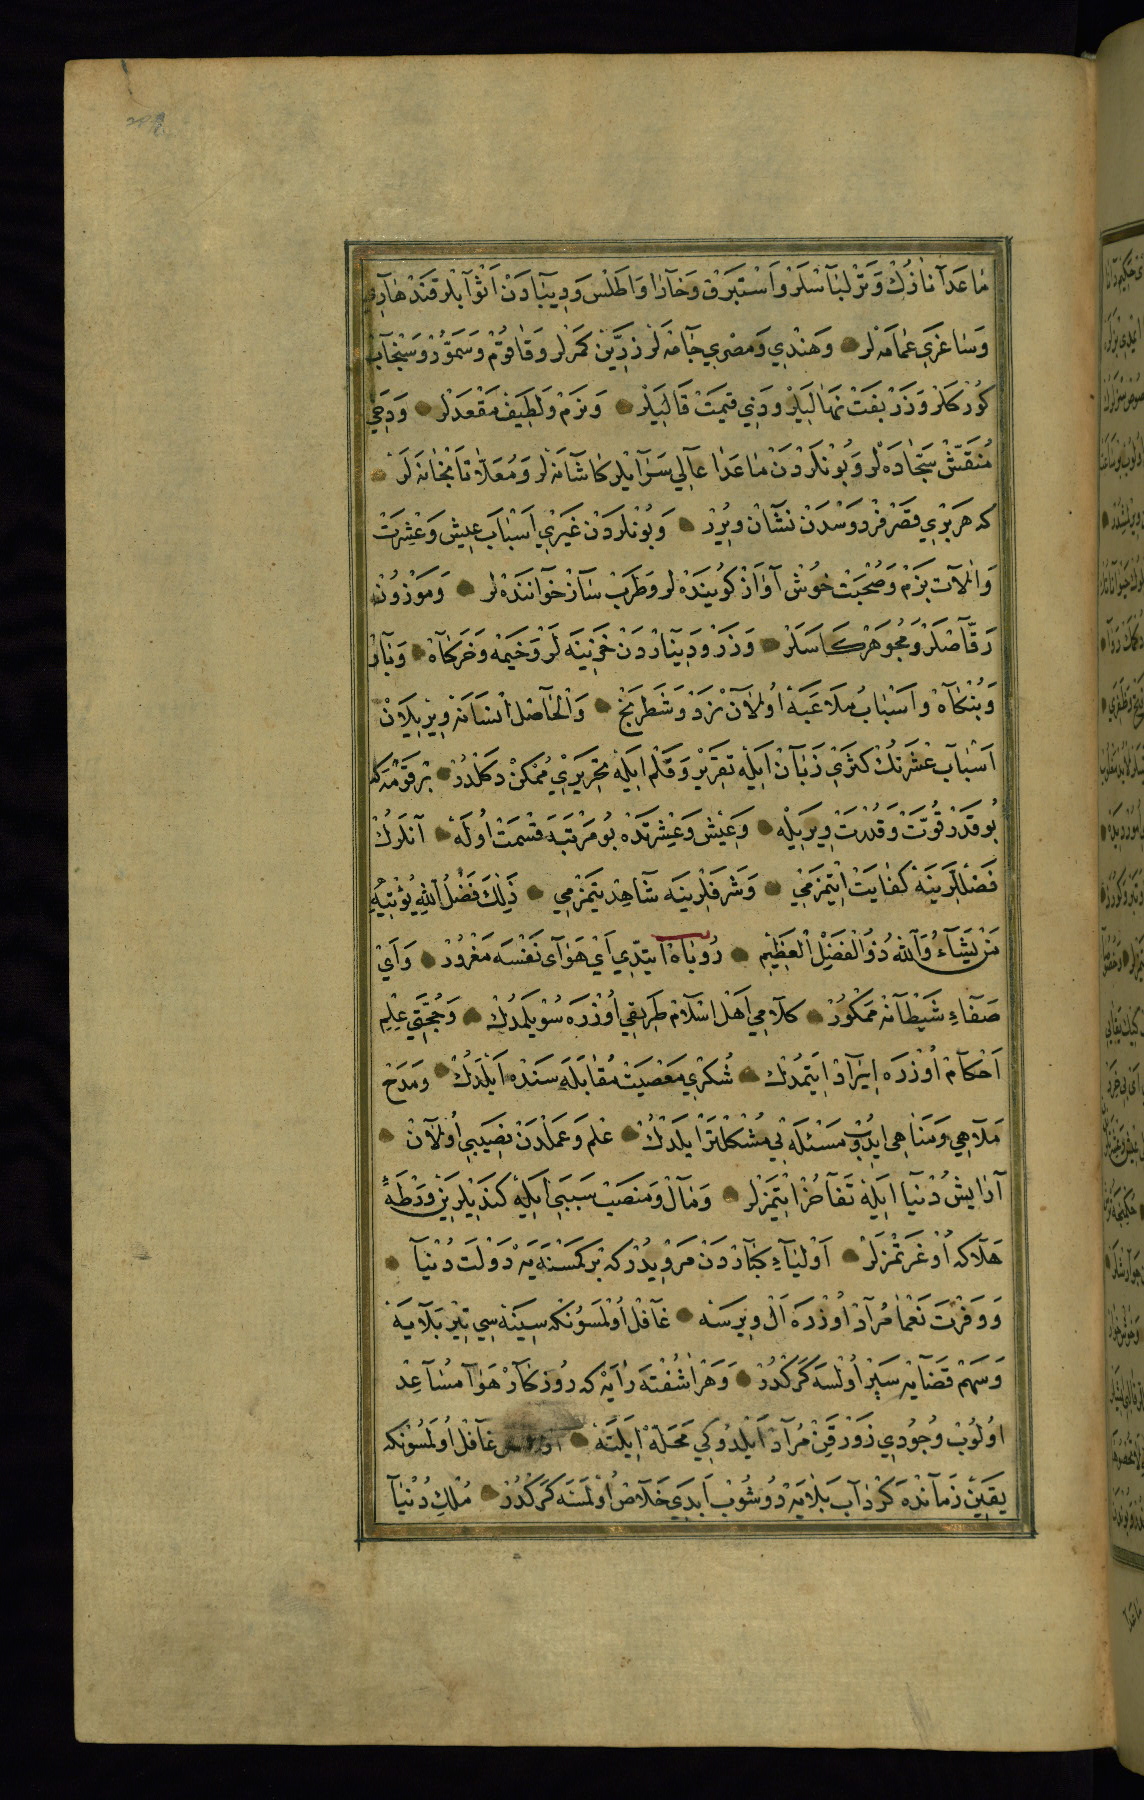 مَا عَدَا نَازُكْ وَتَرْ لِبَاسْلَرْ وَاسْتَبْرَقْ وَخَارَا وَاَطْلَسْ وَدِيبَادَنْ اَثْوَابْلَر قَنْدَهَارِي
وَسَاغَرِي عَمَامَه لَر وَهِنْدِي وَمِصْرِي جَامَه لَر زَرِّينْ كَمَرْلَر وَقَاقُومْ وَسَمُّورْ وَسِنْجَابْ
كُورْكلَرْ وَزَرْبَفَتْ نِهَالِيلَرْ وَدَخِي قِيمَتْ قَالِيلَرْ وَنَرْم وَلَطِيفْ مَقْعَدْلَر وَدَخِي
مُنَقَّشْ سَجَّادَه لَر وَبُونْلَرْدَنْ مَا عَدَا عَالِي سَرَايْلَر كَاشَانَه لَر وَمُعَلَّا تَابْخَانَه لَرْ
كه هَر بِرِي قَصْرِ فِرْدَوْسْدَنْ نِشَانْ وِيرُرْ وَبُونْلَرْدَنْ غَيْرِي اَسْبَابِ عِيشْ وَعِشْرَتْ
وَاٰلَاتِ بَزْم وَصُحْبَتْ خُوشْ آوَازْ كُويَنْدَه لَر وَطَرَبْ سَازْ خَوَانَنْدَه لَر وَمَوْزُونْ
رَقَّاصْلَرْ وَمُجَوْهَرْ كَاسَلَرْ وَزَرْ وَدِينَارْدَنْ خَزِينَه لَرْ وَخَيْمَه وَخَرْكَاهْ وَبَارْ
وَبُنْكَاهْ وَاَسْبَابِ مَلَاعَبَه اُولَانْ نَرْدْ وَشَطْرَنْجْ وَالْحَاصِلْ اِنْسَانَه وِيرِيلَانْ
اَسْبَابِ عِشْرَتُكْ كَثْرَتِي زَبَانْ اِيلَه تَقْرِيرْ وَقَلَمْ اِيلَه تَحْرِيرِي مُمْكِنْ دَكُلْدُرْ بِرْ قَوْمَه كه
بُو قَدَرْ قُوَّتْ وَقُدْرَتْ وِيرِيلَه وَعِيشْ وَعِشْرَتْدَه بُو مَرْتَبَه قِسْمَتْ اُولَه آنْلَرُكْ
فَضْلْلَرِينَه كِفَايَتْ اِيتْمَزْمِي وَشَرَفْلَرِينَه شَاهِدْ يَتْمَزْمِي ذٰلِكَ فَضْلُ اللهِ يُؤْتِيهِ
مَنْ يَشَاءُ وَاللهُ ذُو الْفَضْلِ الْعَظِيمِ رُوبَاهْ اَيِتْدِي اَيْ هَوَآى نَفْسَه مَغْرُورْ وَاَيْ
صَفَاءِ شَيْطَانَه مَمْكُورْ كَلَامِي اَهْلِ اِسْلَامْ طَرِيقِي اُوزْرَه سُويْلَمَدُكْ وَحُجَّتِي عِلْمِ
اَحْكَامْ اُوزْرَه اِيرَادْ اِيتْمَدُكْ شُكْرِي مَعْصِيَتْ مُقَابَلَه سَنْدَه اَيْلَدُكْ وَمَدْحِ
مَلَاهِي وَمَنَاهِي اِيدُوبْ مَسْئَلَه يِي مُشْكِلْتَرْ اَيْلَدُكْ عِلْم وَعَمَلْدَنْ نَصِيبِي اُولَانْ
آرَايِشِ دُنْيَا اِيلَه تَفَاخُرْ اِيتْمَزْلَر وَمَالْ وَمَنْصَبْ سَبَبِي اِيلَه كَنْدِيلَرِينْ وَرْطَۀ
هَلَاكَه اُوغْرَتْمَزْلَرْ اَوْلِيَاءِ كِبَارْدَنْ مَرْوِيدُرْ كه بِرْ كِمْسَنَه يَه دَوْلَتِ دُنْيَا
وَوَفْرَتِ نَعْمَا مُرَادْ اُوزْرَه اَلْ وِيرْسَه غَافِلْ اُولْمَسُونْكه سِينَه سِي تِيرِ بَلَايَه
وَسَهْمِ قَضَايَه سِپَرْ اُولْسَه كَرَكْدُرْ وَهَرْ آشُفْتَه رَايَه كه رُوزْكَارْ هَوَا مُسَاعِدْ
اُولُوبْ وُجُودِي زَوْرَقِنْ مُرَادْ اَيْلَدُوكِي مَحَلَّه اِيلَتَه غَافِلْ اُولْمَسُونْكه
يَقِينْ زَمَانْدَه كِرْدَابِ بَلَايَه دُوشُوبْ اَبَدِي خَلَاصْ اُولْمَسَه كَرَكْدُرْ مُلْكِ دُنْيَا